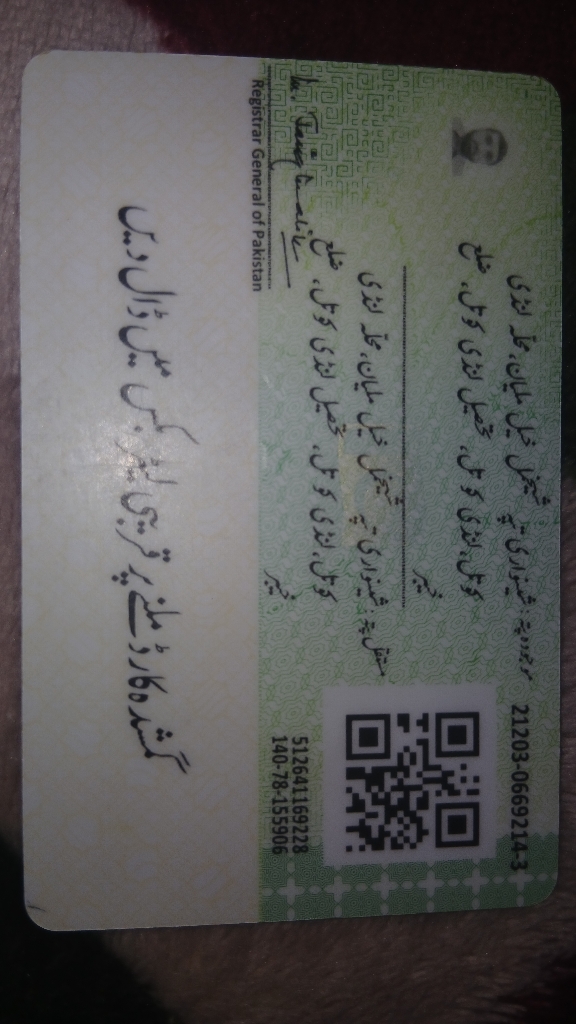 21203-0669214-3
موجودہ پتہ: شینواری تپہ شیخمل خیل ملیان، محلہ لنڈی
کوتل، لنڈی کوتل، تحصیل لنڈی کوتل، ضلع
خیبر
مستقل پتہ: شینواری تپہ شیخمل خیل ملیان، محلہ لنڈی
کوتل، لنڈی کوتل، تحصیل لنڈی کوتل، ضلع
خیبر
512641169228
140-78-155906
Registrar General of Pakistan
گمشدہ کارڈ ملنے پر قریبی لیٹر بکس میں ڈال دیں